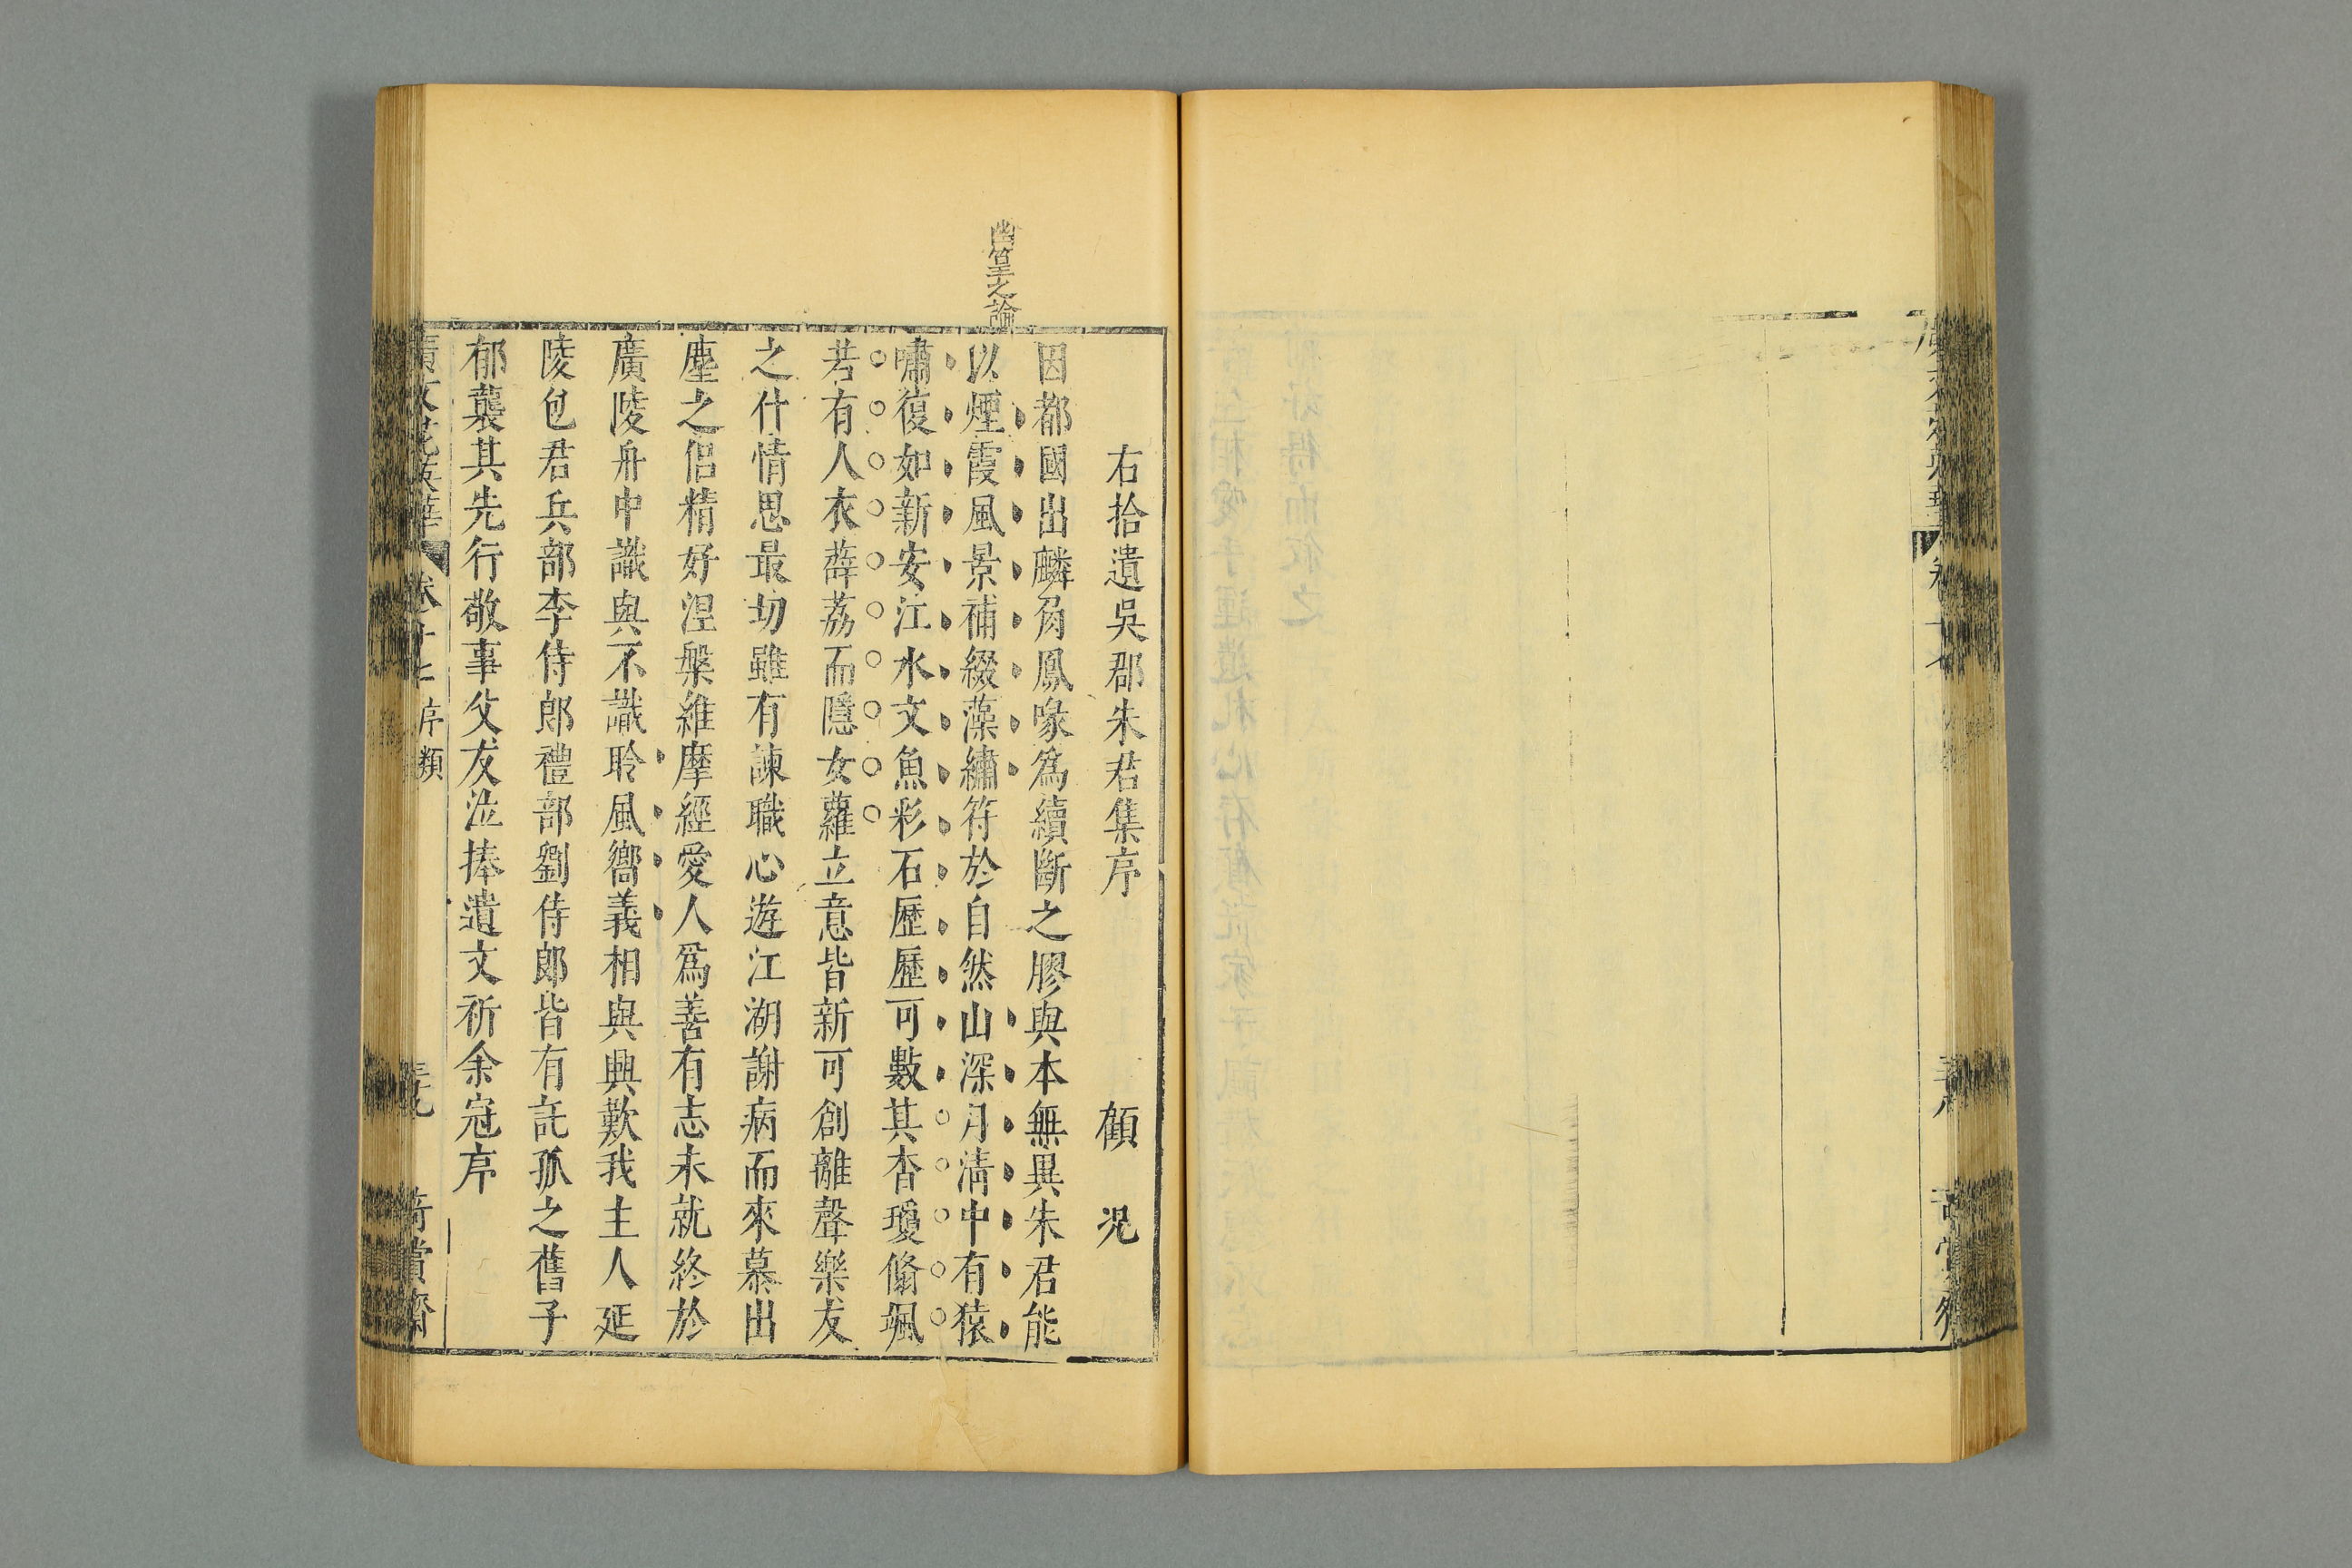 右拾遺吳郡朱君集序 顧況
因都國出麟角鳳喙爲續斷之膠與本無異朱君能
以煙霞風景補綴藻繡符於自然山深月清中有猿
嘯復如新安江水文魚彩石歷歷可數其杳瓊翛颯
若有人衣薜荔而隱女蘿立意皆新可創離聲樂友
之什情思最切雖有諫職心遊江湖謝病而來慕出
塵之侶精好涅槃維摩經愛人爲善有志未就終於
廣陵舟中識與不識聆風嚮義相與興歎我主人延
陵包君兵部李侍郎禮部劉侍郎皆有託孤之舊子
郁襲其先行敬事父友泣捧遺文祈余冠序
幽篁之論
廣文苑英華 卷十七 序類